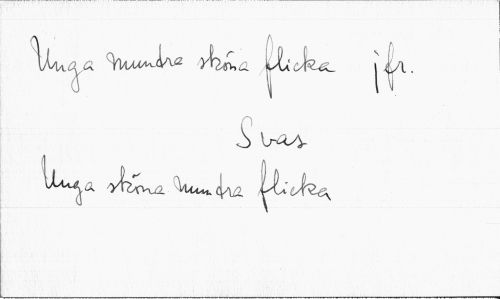 Unga mundra sköna flicka jfr.
Svas
Unga sköna mundra flicka